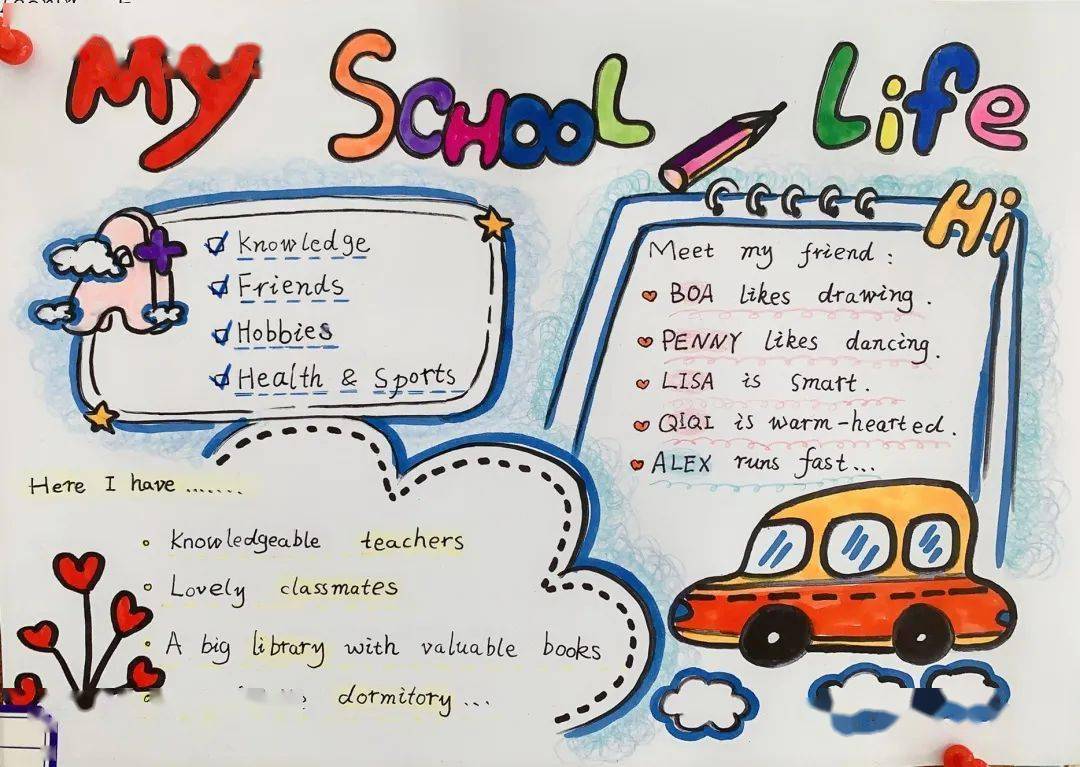 My School Life
Knowledge
Friends
Hobbies
Health & Sports
Hi
Meet my friend :
BOA likes drawing .
PENNY likes dancing .
LISA is smart .
QIQI is warm-hearted .
ALEX runs fast...
Here I have .......
Knowledgeable teachers
Lovely classmates
A big library with valuable books
dormitory ...